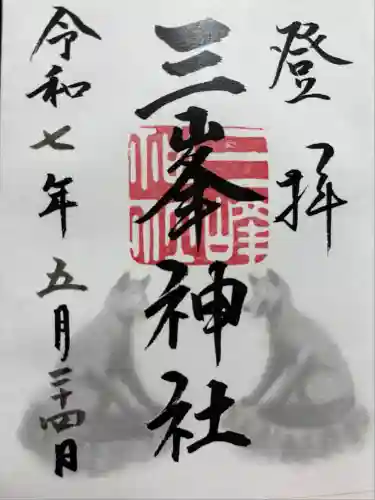 登拝
三峯神社
三峰神社
令和七年五月二十四日